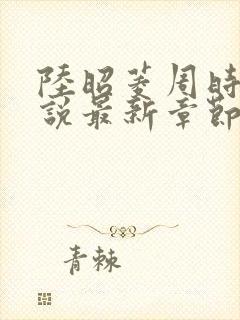 陸昭菱周時
說最新章節
青棘